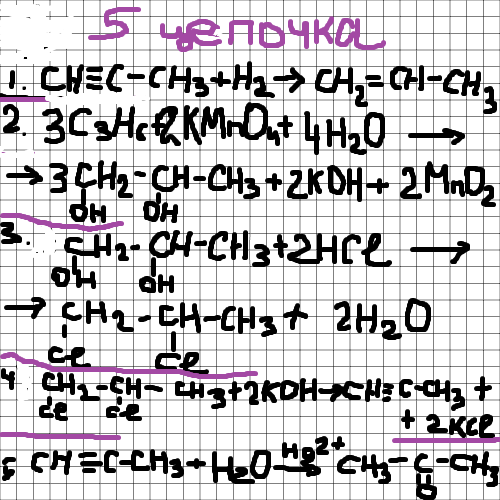 5 цепочка
1. CH≡C-CH3+H2→CH2=CH-CH3
2. 3C3H6+2KMnO4+4H2O →
→3CH2-CH-CH3+2KOH+2MnO2
OH OH
3. CH2-CH-CH3+2HCl →
OH OH
→ CH2-CH-CH3+ 2H2O
Cl Cl
4 CH2-CH-CH3+2KOH→CH≡C-CH3+
Cl Cl
+2KCl
5 CH≡C-CH3+H2O Hg2+→ CH3-C-CH3
O